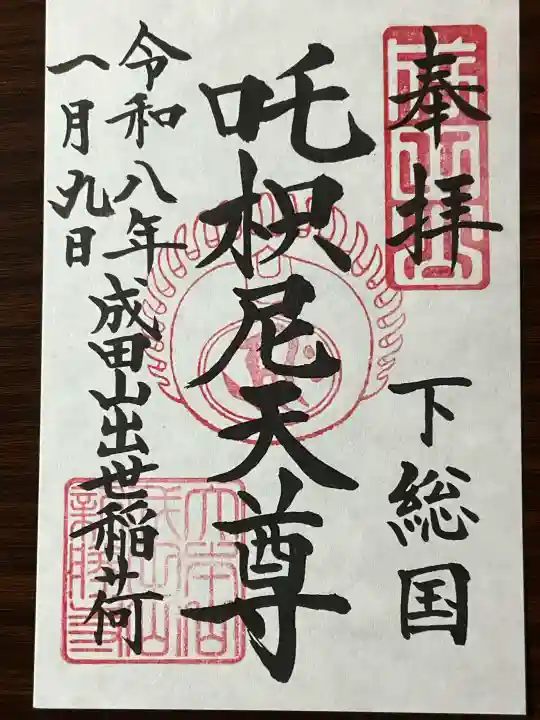 奉拝
下総国
吒枳尼天尊
令和八年
一月九日
成田山出世稲荷